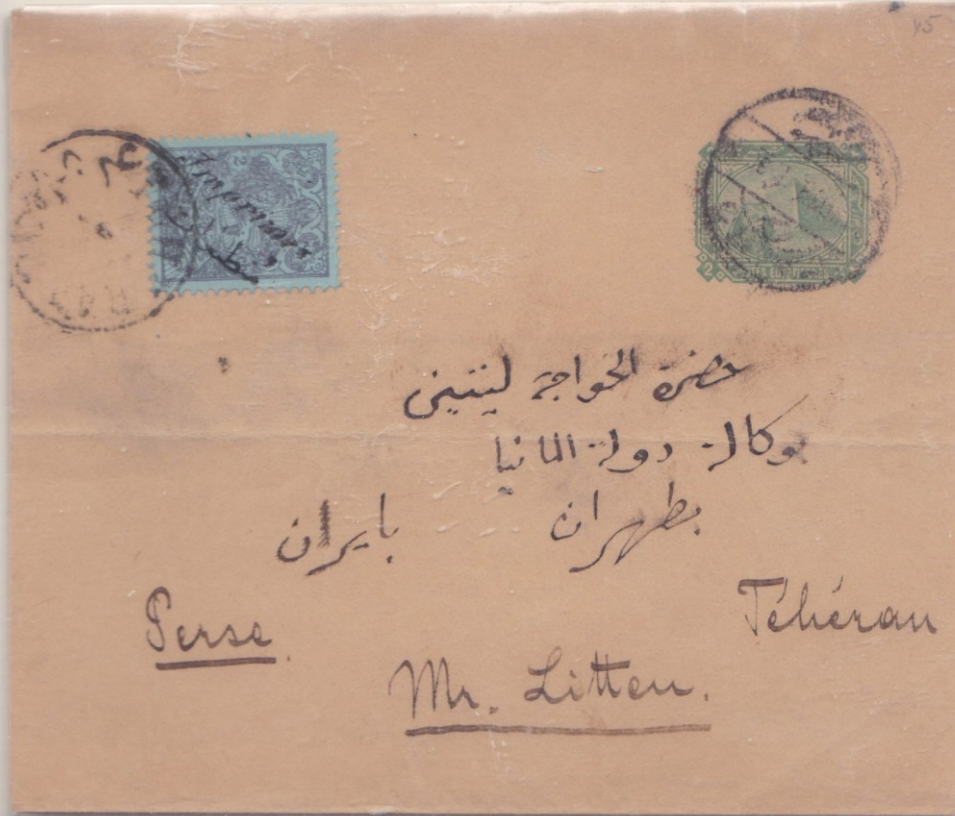 45
Imprimés
2
2
حضرة الخواجة ليتين
بوكالة دولة المانيا
بطهران بايران
Téhéran
Perse
Mr. Litten.